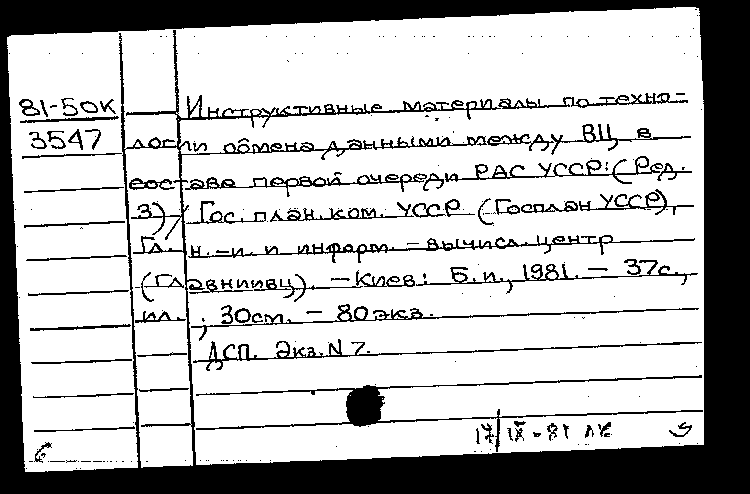 81-50К Инструктивные материалы по техно-
3547 логии обмена данными между ВЦ в
составе первой очереди РАС УССР: (Ред.
3) / Гос. план. ком. УССР (Госплан УССР),
Гл. н.-и. и информ.-вычисл. центр
(Главниивц). – Киев: Б.и., 1981. – 37с.,
ил. ; 30см. – 80 экз.
ДСП. Экз. N 7.
17/IX-81
6